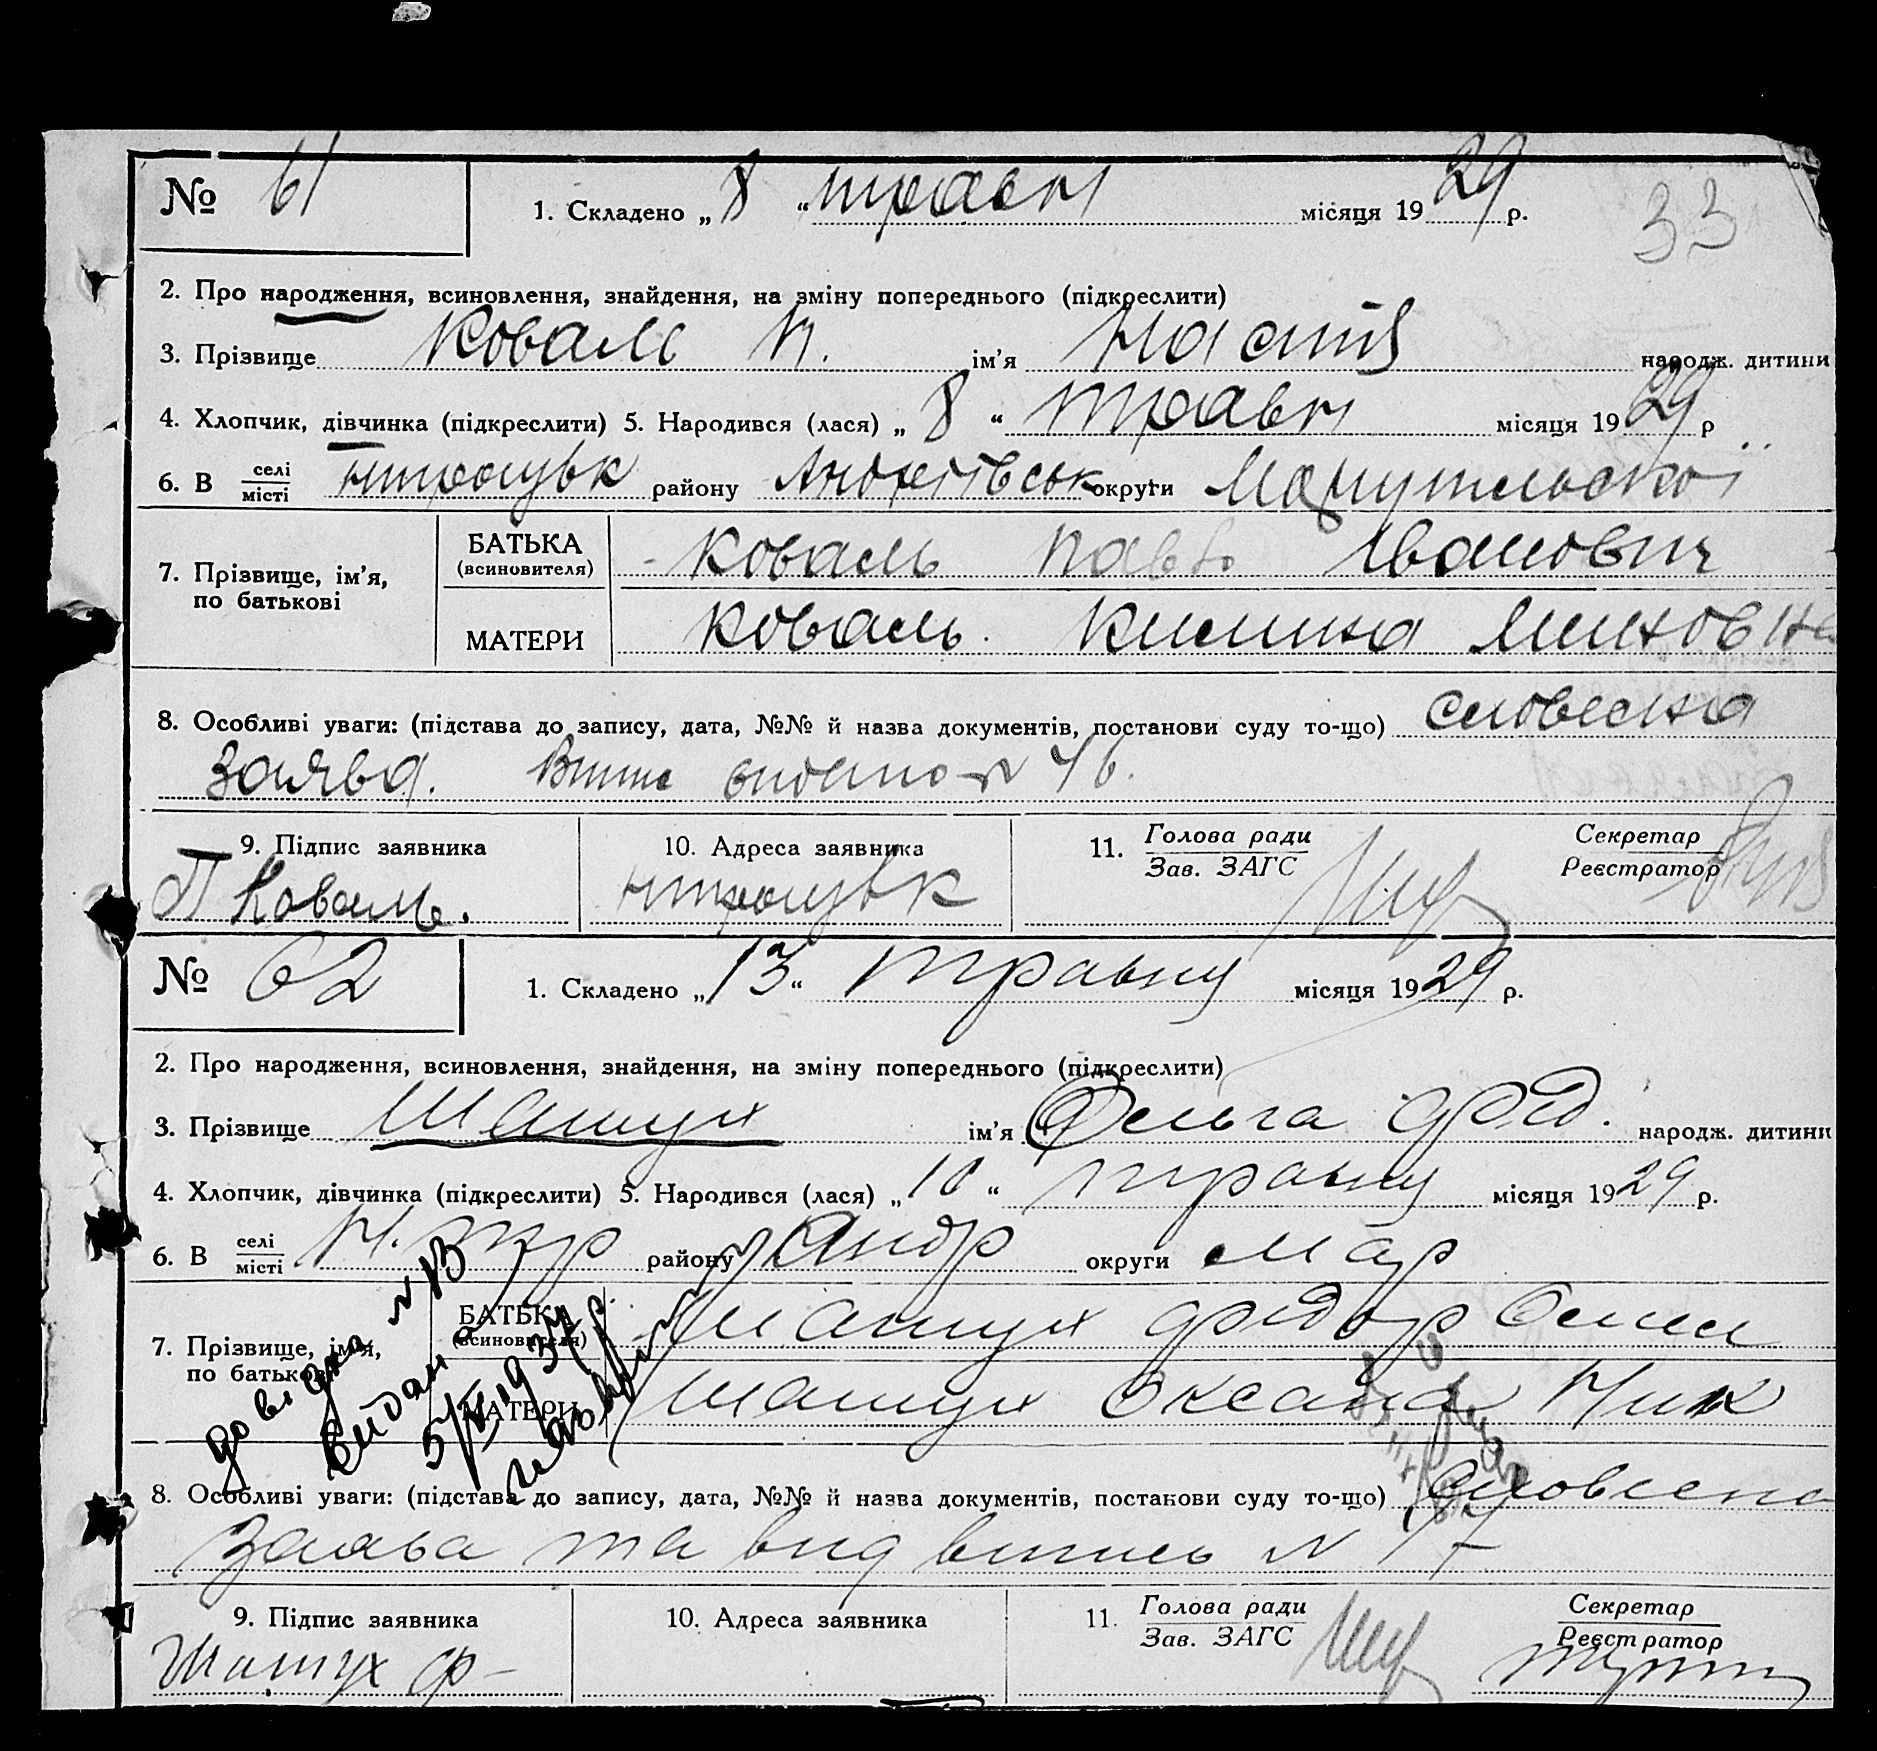 № 61 1. Складено „ 8 “ травн місяця 19 29 р. 33
2. Про народження, всиновлення, знайдення, на зміну попереднього (підкреслити)
3. Прізвище Коваль П. ім’я Настя народж. дитини
4. Хлопчик, дівчинка (підкреслити) 5. Народився (лася) „ 8 “ травн місяця 19 29 р
6. В селі/місті району Андріївськ округи Маріупільської
7. Прізвище, ім’я, по батькові
БАТЬКА (всиновителя) Коваль Павло Іванович
МАТЕРИ Коваль Килина
8. Особливі уваги: (підстава до запису, дата, №№ й назва документів, постанови суду то-що) словесна
заява. Витяг видано №
9. Підпис заявника 10. Адреса заявника 11. Голова ради/Зав. ЗАГС Секретар/Реєстратор
П Коваль.
№ 62 1. Складено „ 13 “ травну місяця 19 29 р.
2. Про народження, всиновлення, знайдення, на зміну попереднього (підкреслити)
3. Прізвище ім’я Ольга Фед. народж. дитини
4. Хлопчик, дівчинка (підкреслити) 5. Народився (лася) „ 10 “ травну місяця 19 29 р.
6. В селі/місті району Андр округи Мар
7. Прізвище, ім’я, по батькові
БАТЬКА (всиновителя) Федор
МАТЕРИ Оксана Ник
видан
8. Особливі уваги: (підстава до запису, дата, №№ й назва документів, постанови суду то-що) Словесна
Заява та вид випись №
9. Підпис заявника 10. Адреса заявника 11. Голова ради/Зав. ЗАГС Секретар/Реєстратор